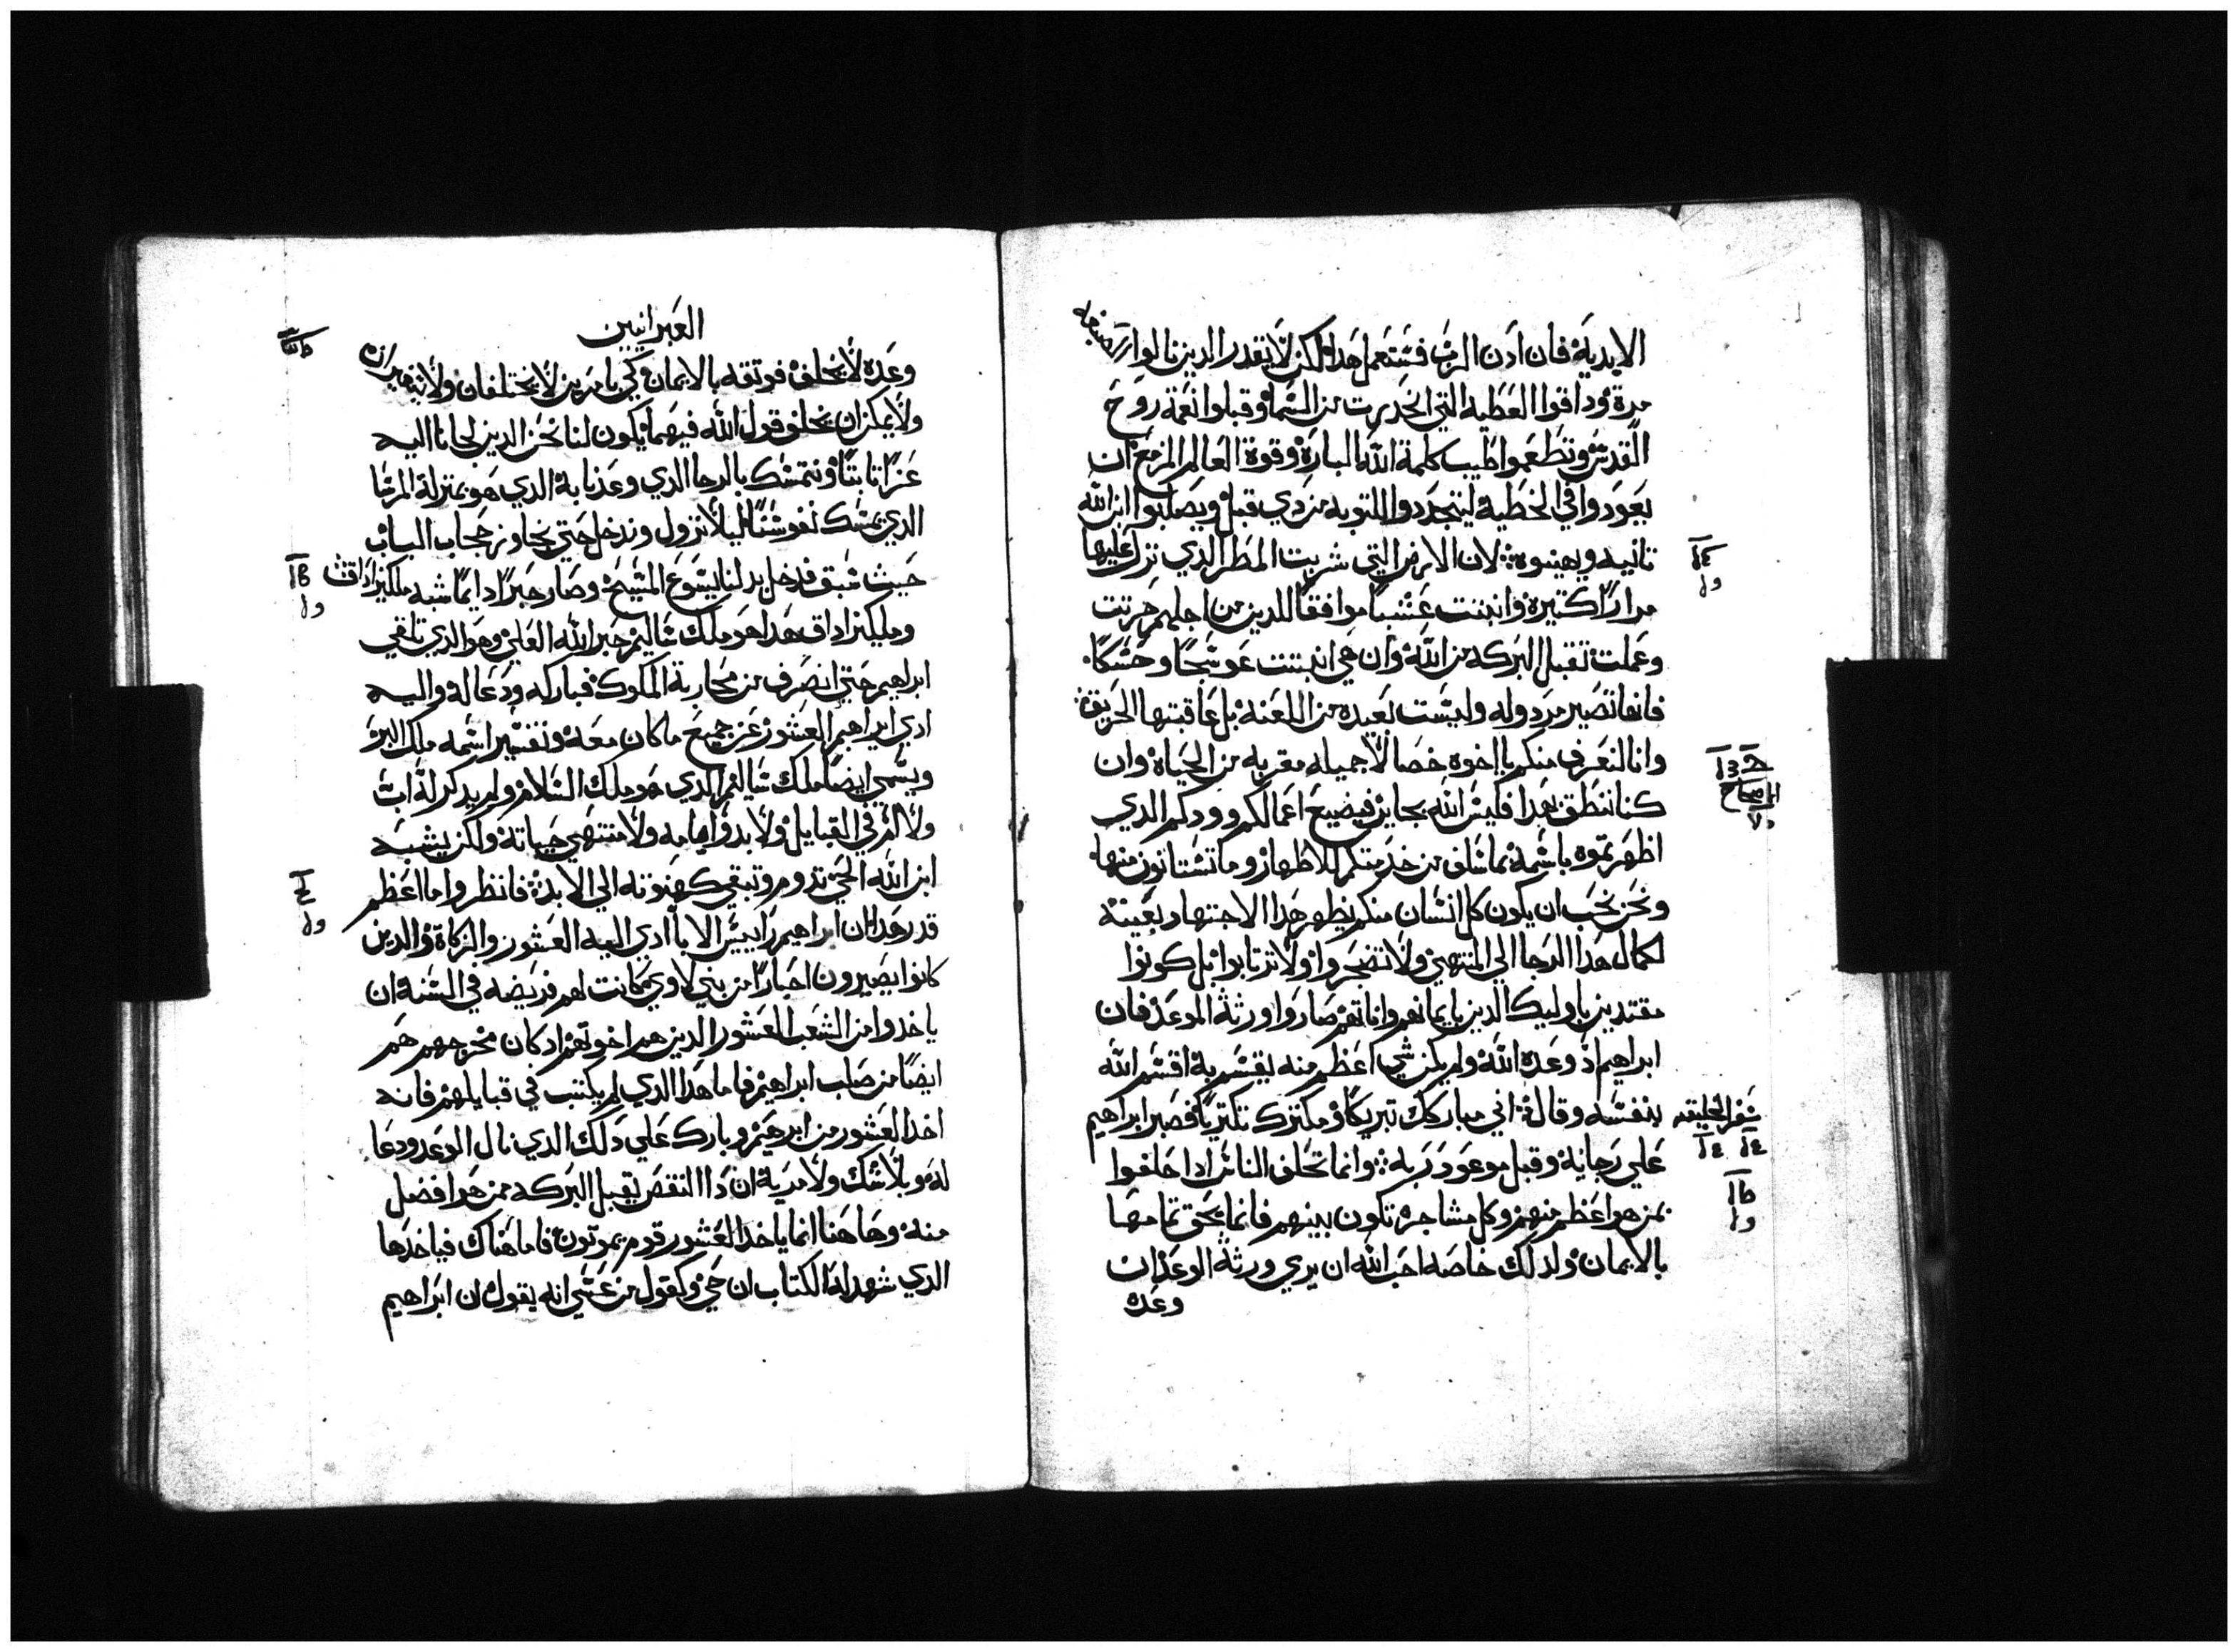 الابدية فان ادن الرب فسنعمل هدا لكن لا يقدر الدين نالوا الصبغه
مرة وداقوا العطيه التي انحدرت من السما وقبلوا نعمة روح
القدس وتطعموا طيب كلمة الله البارة وقوة العالم المزمع ان
يعودوا في الخطية ليتجددوا للتوبه من دي قبل ويصلبوا ابن الله
تانيه ويهينوه لان الارض التي شربت المطر الدي نزل عليها
مرارًا كتيرة وانبتت عشبًا موافقًا للدين من اجلهم حرتت
وعملت تقبل البركه من الله وان هي انبتت عوسجًا وحسكًا
فانها تصير مردوله وليست بعيده من اللعنه بل عاقبتها الحريق
وانا لنعرف منكم يا اخوه خصالا جميله مقربه من الحياه وان
كنا ننطق بهدا فليس الله بجاير فيضيع اعمالكم وودكم الدي
اظهرتموه باسمه بما سلف من خدمتكم للاطهار وما تستانون منها
ونحن نحب ان يكون كل انسان منكم يظهر هدا الاجتهاد بعينه
لكمال هدا الرجا الي المنتهي ولا تضجروا ولا ترتابوا بل كونوا
مقتدين باوليك الدين بايمانهم واناتهم صاروا ورثة الموعد فان
ابراهيم اد وعده الله ولم يكن شي اعظم منه يقسم به اقسم الله
سفر الخليقه
بنفسه وقال اني مباركك تبريكًا ومكترك تكتريًا فصبر ابراهيم
علي رجايه وقبل موعود ربه وانما تحلف الناس ادا حلفوا
بمن هو اعظم منهم وكل مشاجره تكون بينهم فانما يحق تمامها
بالايمان ولدلك خاصه احب الله ان يري ورثة الوعد ان
وعده
العبرانيين
وعده لا يخلف فوتقه بالايمان وكي بامرين لا يختلفان ولا يتغيران
ولا يمكن ان يخلف قول الله فيهما يكون لنا نحن الدين لجانا اليه
عزًا تابتًا ونتمسك بالرجا الدي وعدنا به الدي هو بمنزلة المرسا
الدي يمسك نفوسنا ليلا تزول وندخل حتي نجاوز حجاب الباب
حيث سبق فدخل بدلنا يسوع المسيح وصار حبرًا دايمًا شبه ملكيزاداق
وملكيزاداق هدا هو ملك ساليم حبر الله العلي وهو الدي تلقي
ابراهيم حتي انصرف من محاربة الملوك فباركه ودعا له واليه
ادي ابراهيم العشور عن جميع ما كان معه وتفسير اسمه ملك البر
ويسمي ايضًا ملك ساليم الدي هو ملك السلام ولم يدكر له اب
ولا ام في القبايل ولا بدو ايامه ولا منتهي حياته ولكن يشبه
ابن الله الحي تدوم وتبقي كهنوته الي الابد فانظروا ما اعظم
قدر هدا ان ابراهيم راييس الابا ادي اليه العشور والزكاة والدين
كانوا يصيرون احبارًا من بني لاوي كانت لهم فريضه في السنه ان
ياخدوا من الشعب العشور الدين هم اخوتهم اد كان مخرجهم هم
ايضًا من صلب ابراهيم فاما هدا الدي لم يكتب في قبايلهم فانه
اخد العشور من ابرهيم وبارك علي دلك الدي نال الوعد ودعا
له وبلا شك ولا مريه ان دا النقص يقبل البركه ممن هو افضل
منه وهاهنا انما ياخد العشور قوم يموتون فاما هناك فياخدها
الدي شهد له الكتاب ان حي وكقول من عسي انه يقول ان ابراهيم